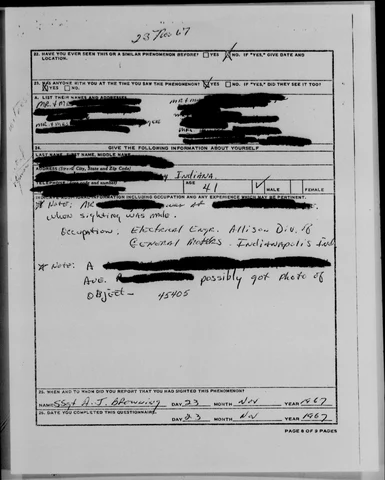 23 Nov 67
22. HAVE YOU EVER SEEN THIS OR A SIMILAR PHENOMENON BEFORE? YES NO. IF "YES," GIVE DATE AND
LOCATION.
23. WAS ANYONE WITH YOU AT THE TIME YOU SAW THE PHENOMENON? YES IF "YES," DID THEY SEE IT TOO?
YES NO.
A. LIST THEIR NAMES AND ADDRESSES
MR. & M MR &
MR & MR
24. GIVE THE FOLLOWING INFORMATION ABOUT YOURSELF
LAST NAME, FIRST NAME, MIDDLE NAME
ADDRESS (Street, City, State and Zip Code) INDIANA
TELEPHONE AGE 41 MALE FEMALE
INFORMATION INCLUDING OCCUPATION AND ANY EXPERIENCE WHICH MAY BE PERTINENT.
* Note: MR was at
when sighting was made.
Occupation. Electrical Engr. Allison Div. of
GENERAL Motors. Indianapolis Ind.
* Note: A
Ave. possibly got photo of
object— 45405
25. WHEN AND TO WHOM DID YOU REPORT THAT YOU HAD SIGHTED THIS PHENOMENON?
NAME SSgt A. J. BROWNING DAY 23 MONTH Nov YEAR 1967
26. DATE YOU COMPLETED THIS QUESTIONNAIRE. DAY 23 MONTH Nov YEAR 1967
PAGE 8 OF 9 PAGES